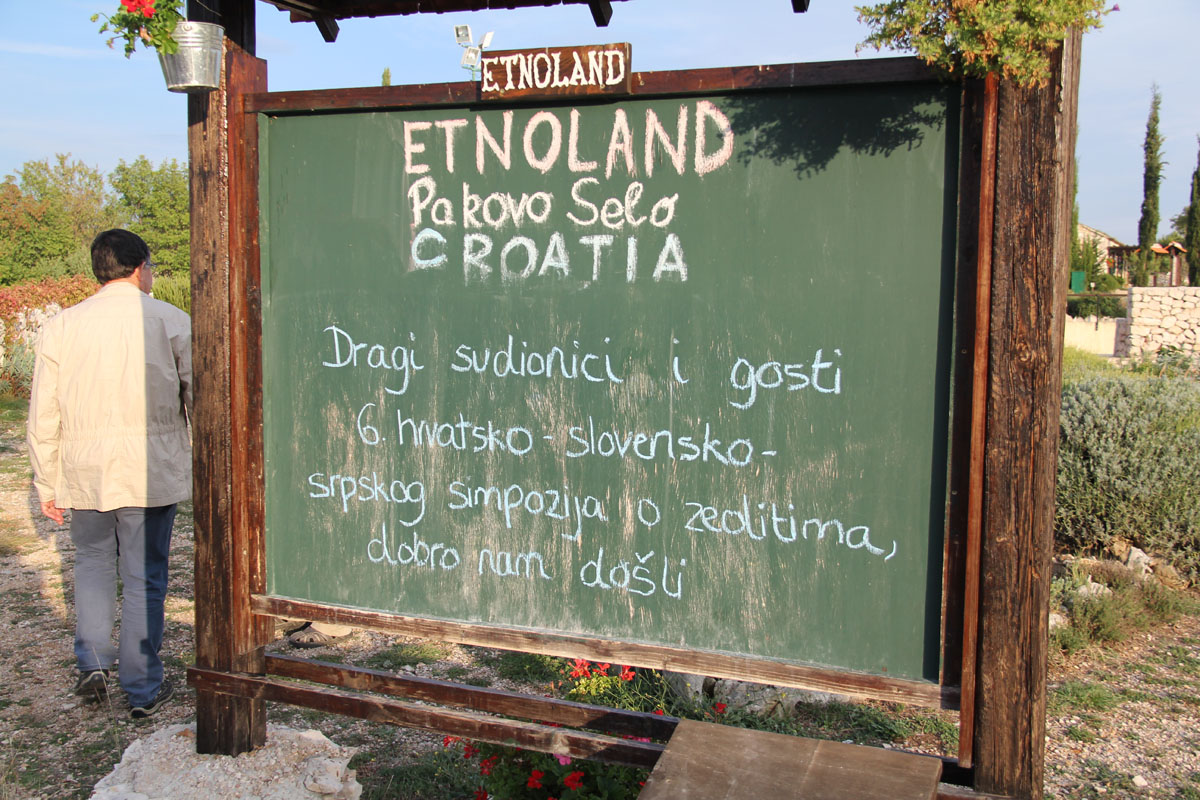 ETNOLAND
ETNOLAND
Pakovo Selo
CROATIA
Dragi sudionici i gosti
6. hrvatsko - slovensko -
srpskog simpozija o zeolitima,
dobro nam došli